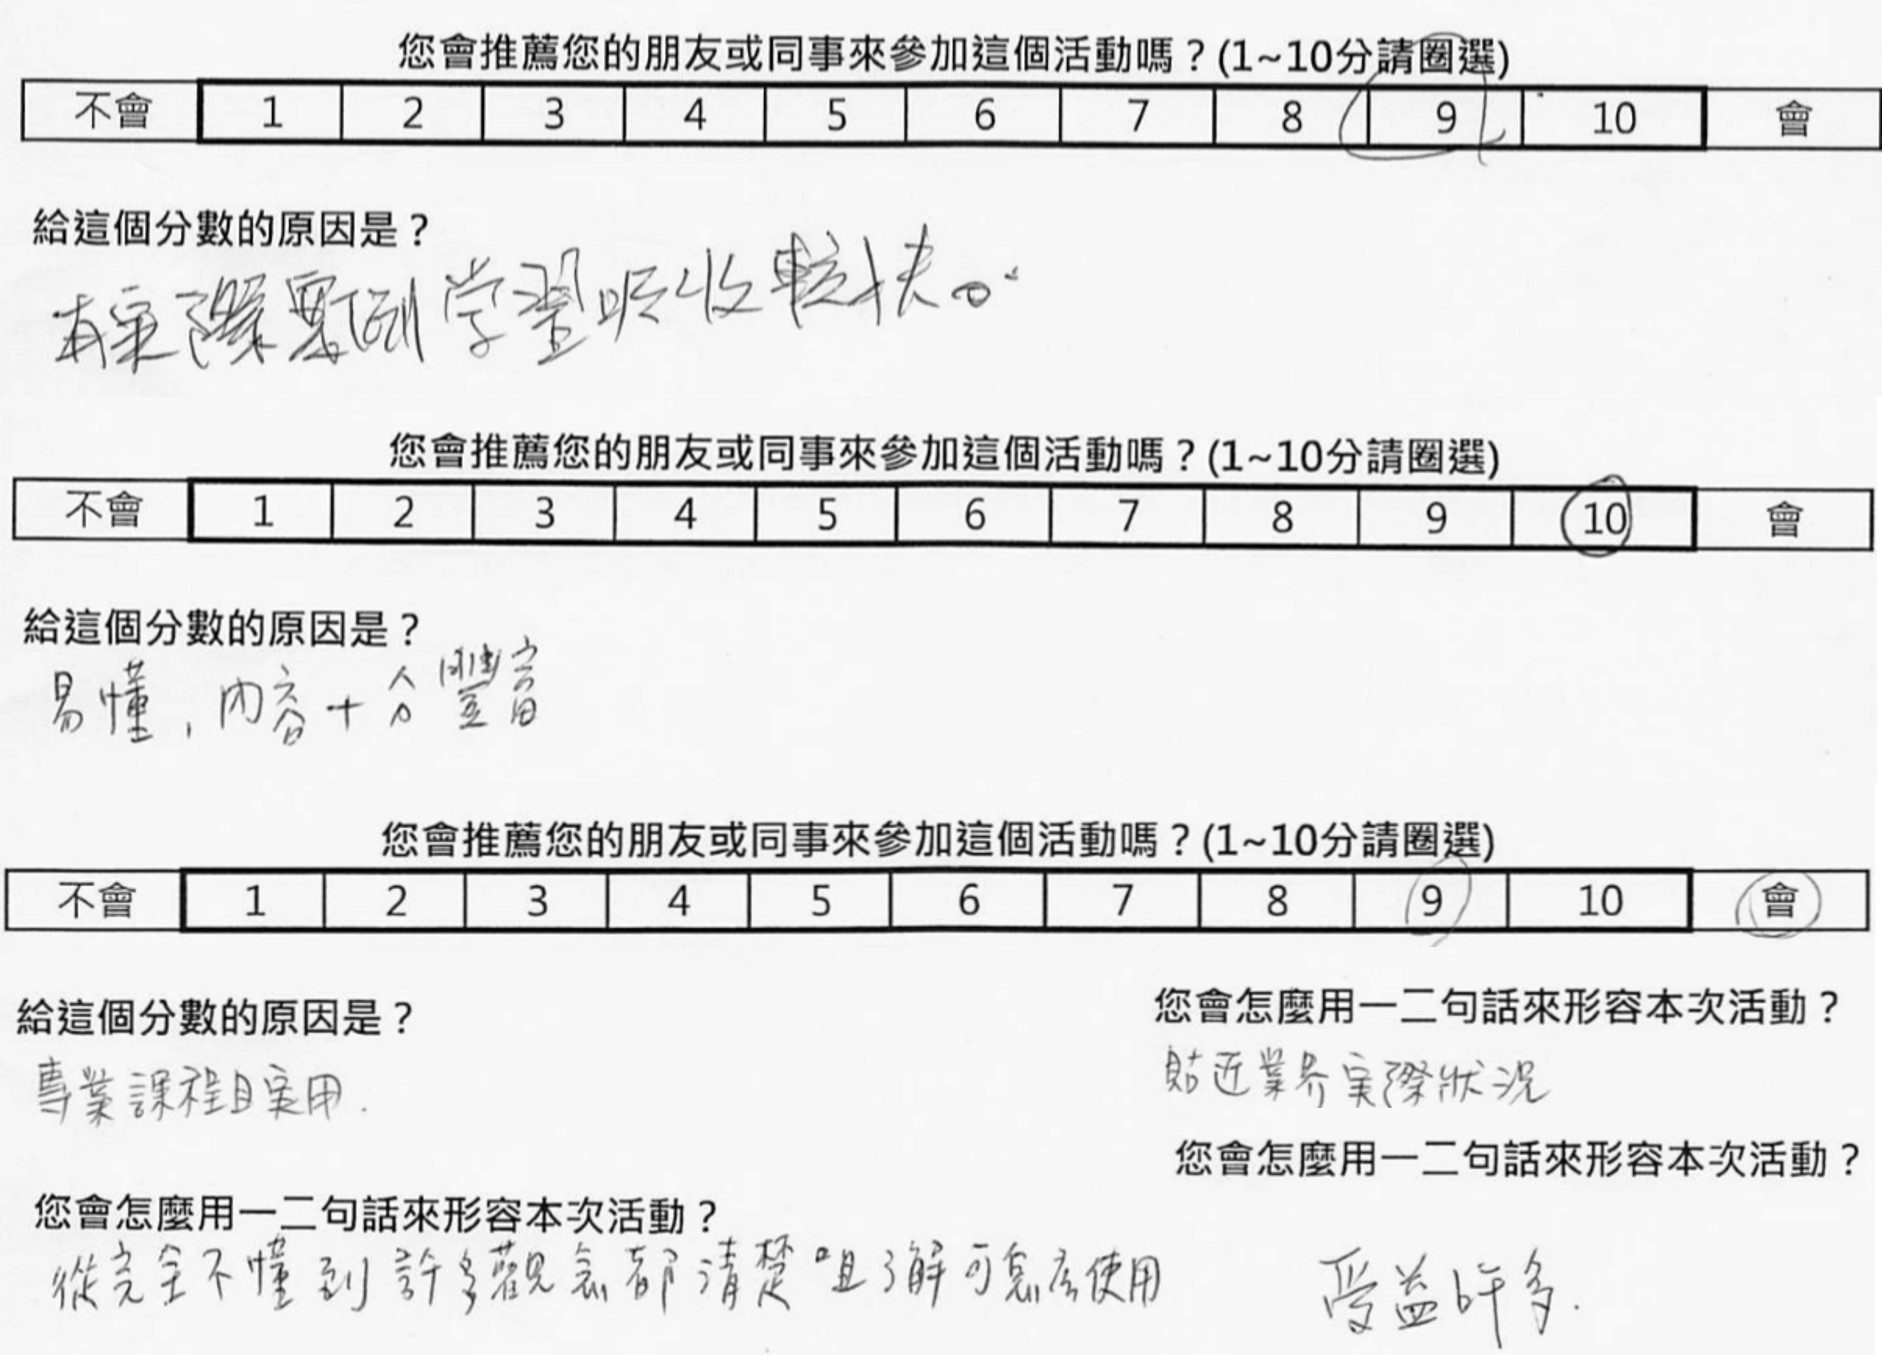 您會推薦您的朋友或同事來參加這個活動嗎？(1~10分請圈選)
不會 1 2 3 4 5 6 7 8 9 10 會
給這個分數的原因是？
有实際案例学習吸收較快。
您會推薦您的朋友或同事來參加這個活動嗎？(1~10分請圈選)
不會 1 2 3 4 5 6 7 8 9 10 會
給這個分數的原因是？
易懂，內容十分豐富
您會推薦您的朋友或同事來參加這個活動嗎？(1~10分請圈選)
不會 1 2 3 4 5 6 7 8 9 10 會
給這個分數的原因是？
專業課程且实用.
您會怎麼用一二句話來形容本次活動？
貼近業界实際狀況
您會怎麼用一二句話來形容本次活動？
受益許多.
您會怎麼用一二句話來形容本次活動？
從完全不懂到許多觀念都清楚咀了解可怎麼使用